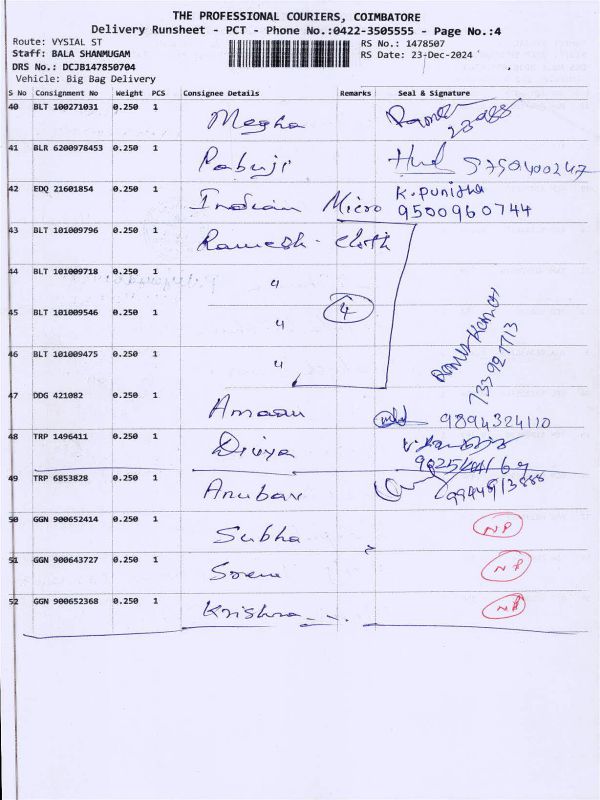 THE PROFESSIONAL COURIERS, COIMBATORE
Delivery Runsheet - PCT - Phone No.:0422-3505555 - Page No.:4
Route: VYSIAL ST RS No.: 1478507
Staff: BALA SHANMUGAM RS Date: 23-Dec-2024
DRS No.: DCJB147850704
Vehicle: Big Bag Delivery
S No Consignment No Weight PCS Consignee Details Remarks Seal & Signature
40 BLT 100271031 0.250 1 Megha
41 BLR 6200978453 0.250 1 Pabuji
42 EDQ 21601854 0.250 1 Indian Micro K. Punitha
9500960744
43 BLT 101009796 0.250 1 Ramesh cloth
44 BLT 101009718 0.250 1 "
45 BLT 101009546 0.250 1 " 4
46 BLT 101009475 0.250 1 "
47 DDG 421082 0.250 1 9894324110
48 TRP 1496411 0.250 1 Divya
49 TRP 6853828 0.250 1 Anubav
50 GGN 900652414 0.250 1 Subha NP
51 GGN 900643727 0.250 1 NP
52 GGN 900652368 0.250 1 Krishna NP